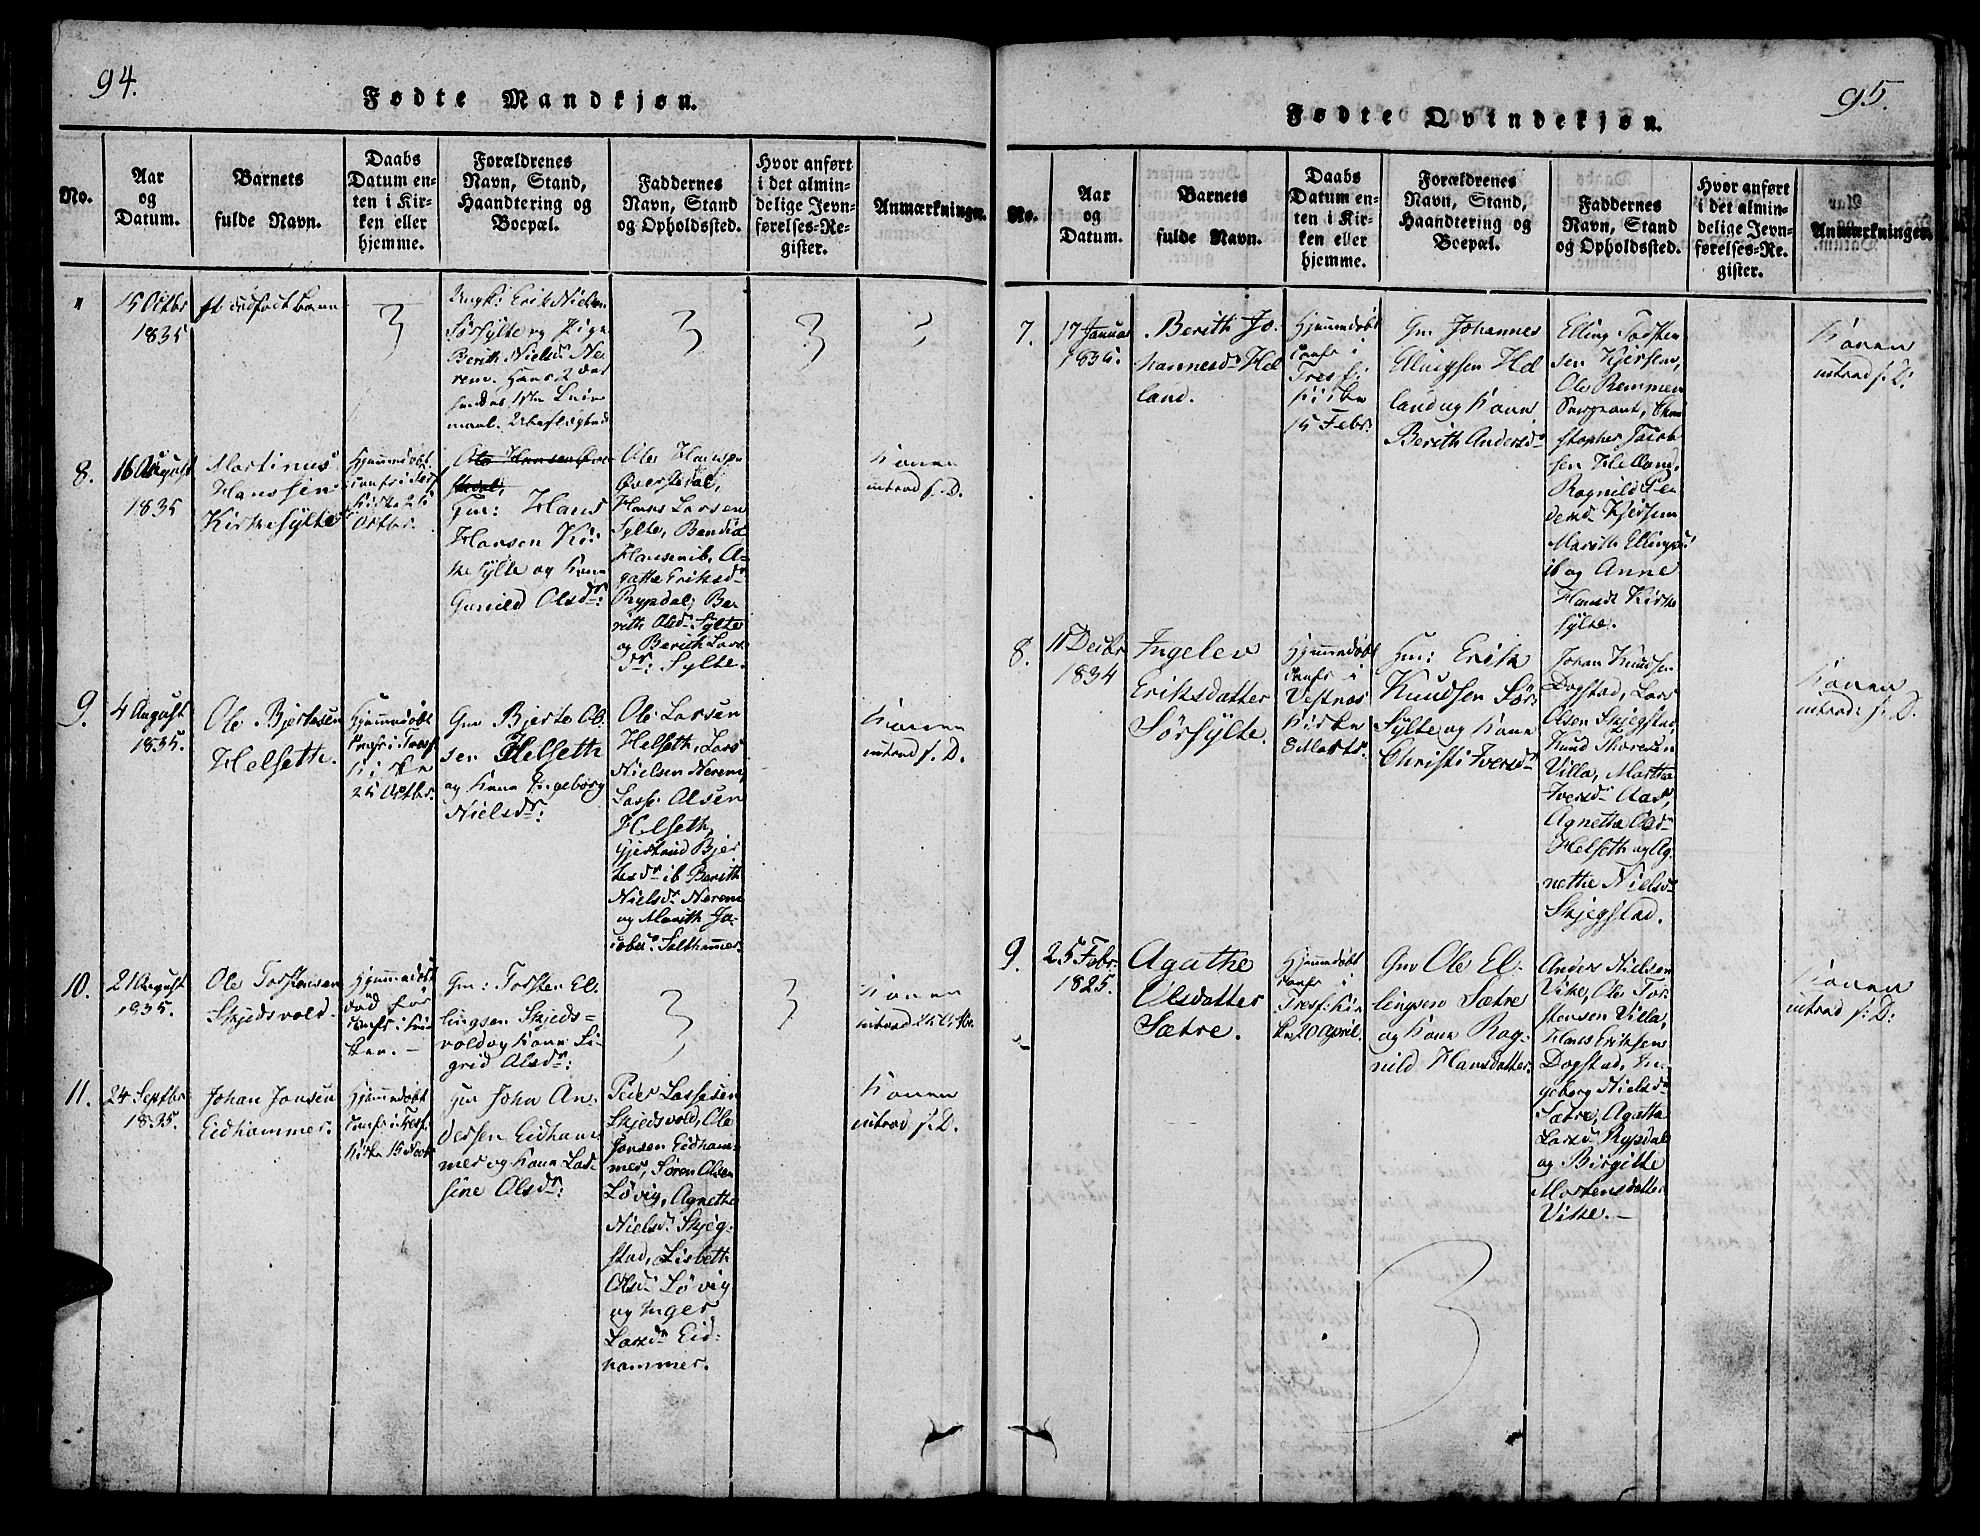 94.
Fødte Mandkjøn.
No.
Aar
og
Datum.
Barnets
fulde Navn.
Daabs
Datum en-
ten i Kir-
ken eller
hjemme.
Forældrenes
Navn, Stand,
Haandtering og
Boepæl.
Faddernes
Navn, Stand
og Opholdssted.
Hvor anført
i det almin-
delige Jevn-
førelses-Re-
gister.
Anmærkninger.
"
15 Octbr
1835
et dødfødt Barn
Ungk: Erik Nielsen
Sørsylte og Pige
Berith Nielsdr Ne-
rem. Hans 2det
hendes 1ste Leier-
maal. Ubeslægtede
8.
16 August
1835
Martinus
Hanssen
Kirkesylte
Hjemmedøbt
confr i Tresf
Kirke 25
Octbr.
Ole Hansen Øver-
stedal,
Gm: Hans
Hansen Kir-
kesylte og Kone
Gunild Olsdr:
Ole Hansen
Øverstedal,
Hans Larsen
Sylte, Bendix
Hansen ib, A-
gathe Eriksdr
Rypdal, Be-
rith Olsdr Sylte
og Berith Lars-
dr: Sylte.
Konen
introd f. D.
9.
4 August
1835.
Ole Bjertesen
Helseth.
Hjemmedøbt
Confr i Tresf
Kirke
25 Octbr.
Gm Bjerte Ol-
sen Helseth
og Kone Ingeborg
Nielsdr:
Ole Larsen
Helseth, Lars
Nielsen Nerem,
Lasse Olsen
Helseth,
Gjertrud Bjer-
tesdr ib Berith
Nielsdr Nerem
og Marith Ja-
cobsdr Salthammer.
Konen
introd f. D.
10.
21 August
1835.
Ole Torstensen
Skjedsvold
Hjemmedøbt
død før
Confr i Kir-
ken. —
Gm: Torsten El-
lingsen Skjeds-
vold og Kone Si-
grid Olsdr:
Konen
introd 25 Octbr.
11.
24 Septbr
1835.
Johan Jonsen
Eidhammer.
Hjemmedøbt
Confr i Tresf.
Kirke 15
Gm John An-
dersen Eidham-
mer og Kone Las-
sine Olsdr:
Peder Lassesen
Skjedsvold, Ole
Jonsen Eidham-
mer, Søren Olsen
Løvig, Agnethe
Nielsdr Skjeg-
stad, Lisbeth
Olsdr Løvig
og Inger
Larsdr Eid-
hammer.
Konen
introd f. D.
95.
Fødte Qvindekjøn.
No.
Aar
og
Datum.
Barnets
fulde Navn.
Daabs
Datum en-
ten i Kir-
ken eller
hjemme.
Forældrenes
Navn, Stand,
Haandtering og
Boepæl.
Faddernes
Navn, Stand
og Opholdssted.
Hvor anført
i det almin-
delige Jevn-
førelses-Re-
gister.
Anmærkninger.
7.
17 Januar
1835.
Berith Jo-
hannesdr Hel-
land.
Hjemmedøbt
Confr i
Tresf:
Kirke
15 Febr.
Gm Johannes
Ellingsen Hel-
land og Kone
Berith Andersdr
Elling Torsten-
sen Kjersem,
Ole Remmen
Sergeant, Chri-
stopher Jacob-
sen Helland,
Ragnild
Kjersem
Marith Ellingsdr
ib og Anne
Hansdr Kirke-
sylte.
Konen
introd f. D.
8.
11 Decbr
1834
Ingelev
Eriksdatter
Sørsylte.
Hjemmedøbt
Confr i
Vestnæs
Kirke
8 Marts.
Gm: Erik
Knudsen Sør-
Sylte og Kone
Christi Iversdr
Johan Knudsen
Dogstad, Lars
Olsen Skjegstad,
Knud
Villa, Martha
Iversdr Aas,
Agnethe Olsdr
Helseth og Ag-
nethe Nielsdr
Skjegstad.
Konen
introd: f. D.
9.
25 Febr.
1825.
Agathe
Olsdatter
Sætre.
Hjemmedøbt
Confr i
Tresf: Kir-
ke 20 April.
Gm Ole El-
lingsen Sætre
og Kone Rag-
nild Hansdatter.
Anders Nielsen
Vike, Ole Tor-
stensen Villa,
Hans Eriksen
Dogstad, In-
geborg Nielsdr
Sætre, Agathe
Larsdr Rypdal
og Birgitte
Mortensdatter
Vike. —
Konen
introd f: D: